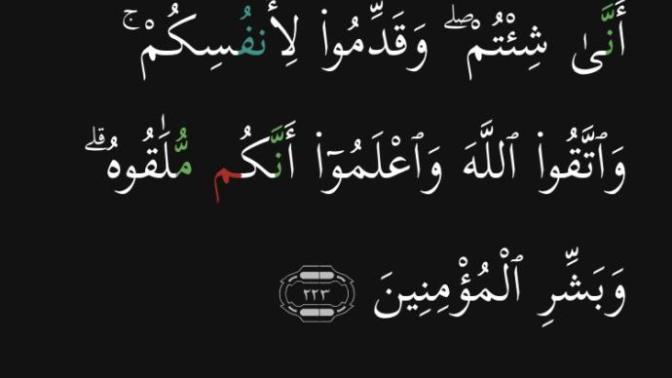 أَنَّىٰ شِئْتُمْ ۖ وَقَدِّمُوا۟ لِأَنفُسِكُمْ ۚ
وَٱتَّقُوا۟ ٱللَّهَ وَٱعْلَمُوٓا۟ أَنَّكُم مُّلَـٰقُوهُ ۗ
وَبَشِّرِ ٱلْمُؤْمِنِينَ ٢٢٣